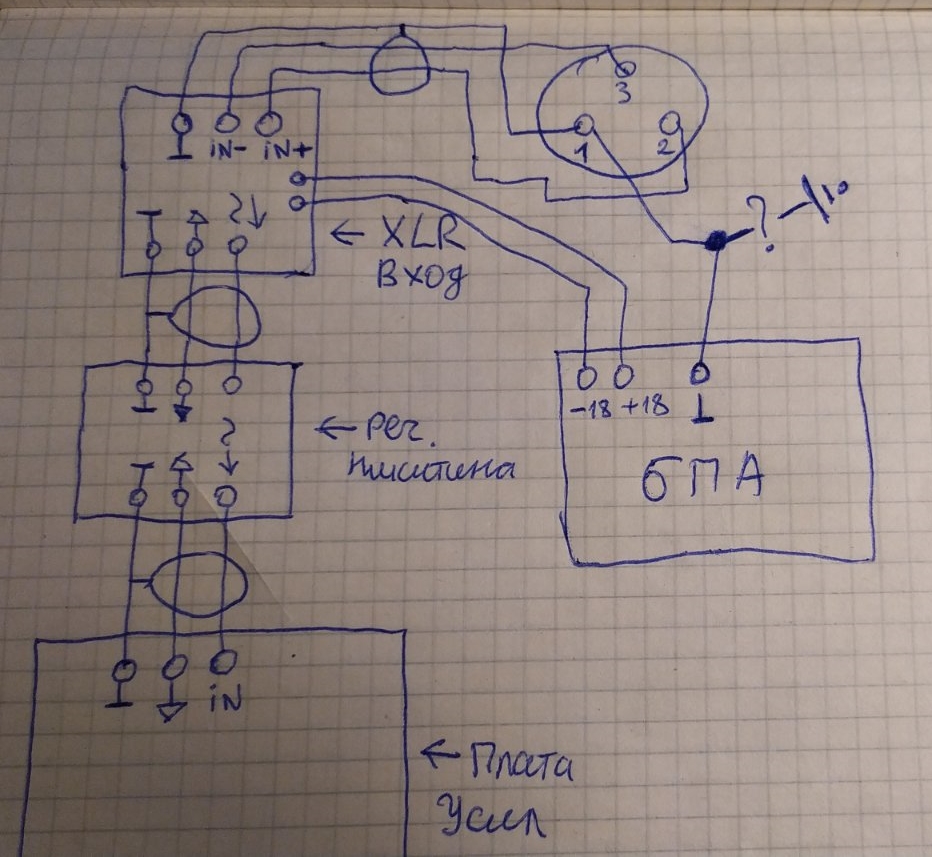 3
1
2
iN- iN+
← XLR
Вход
?
-18 +18
БПА
← Рег.
iN
← Плата
Усил